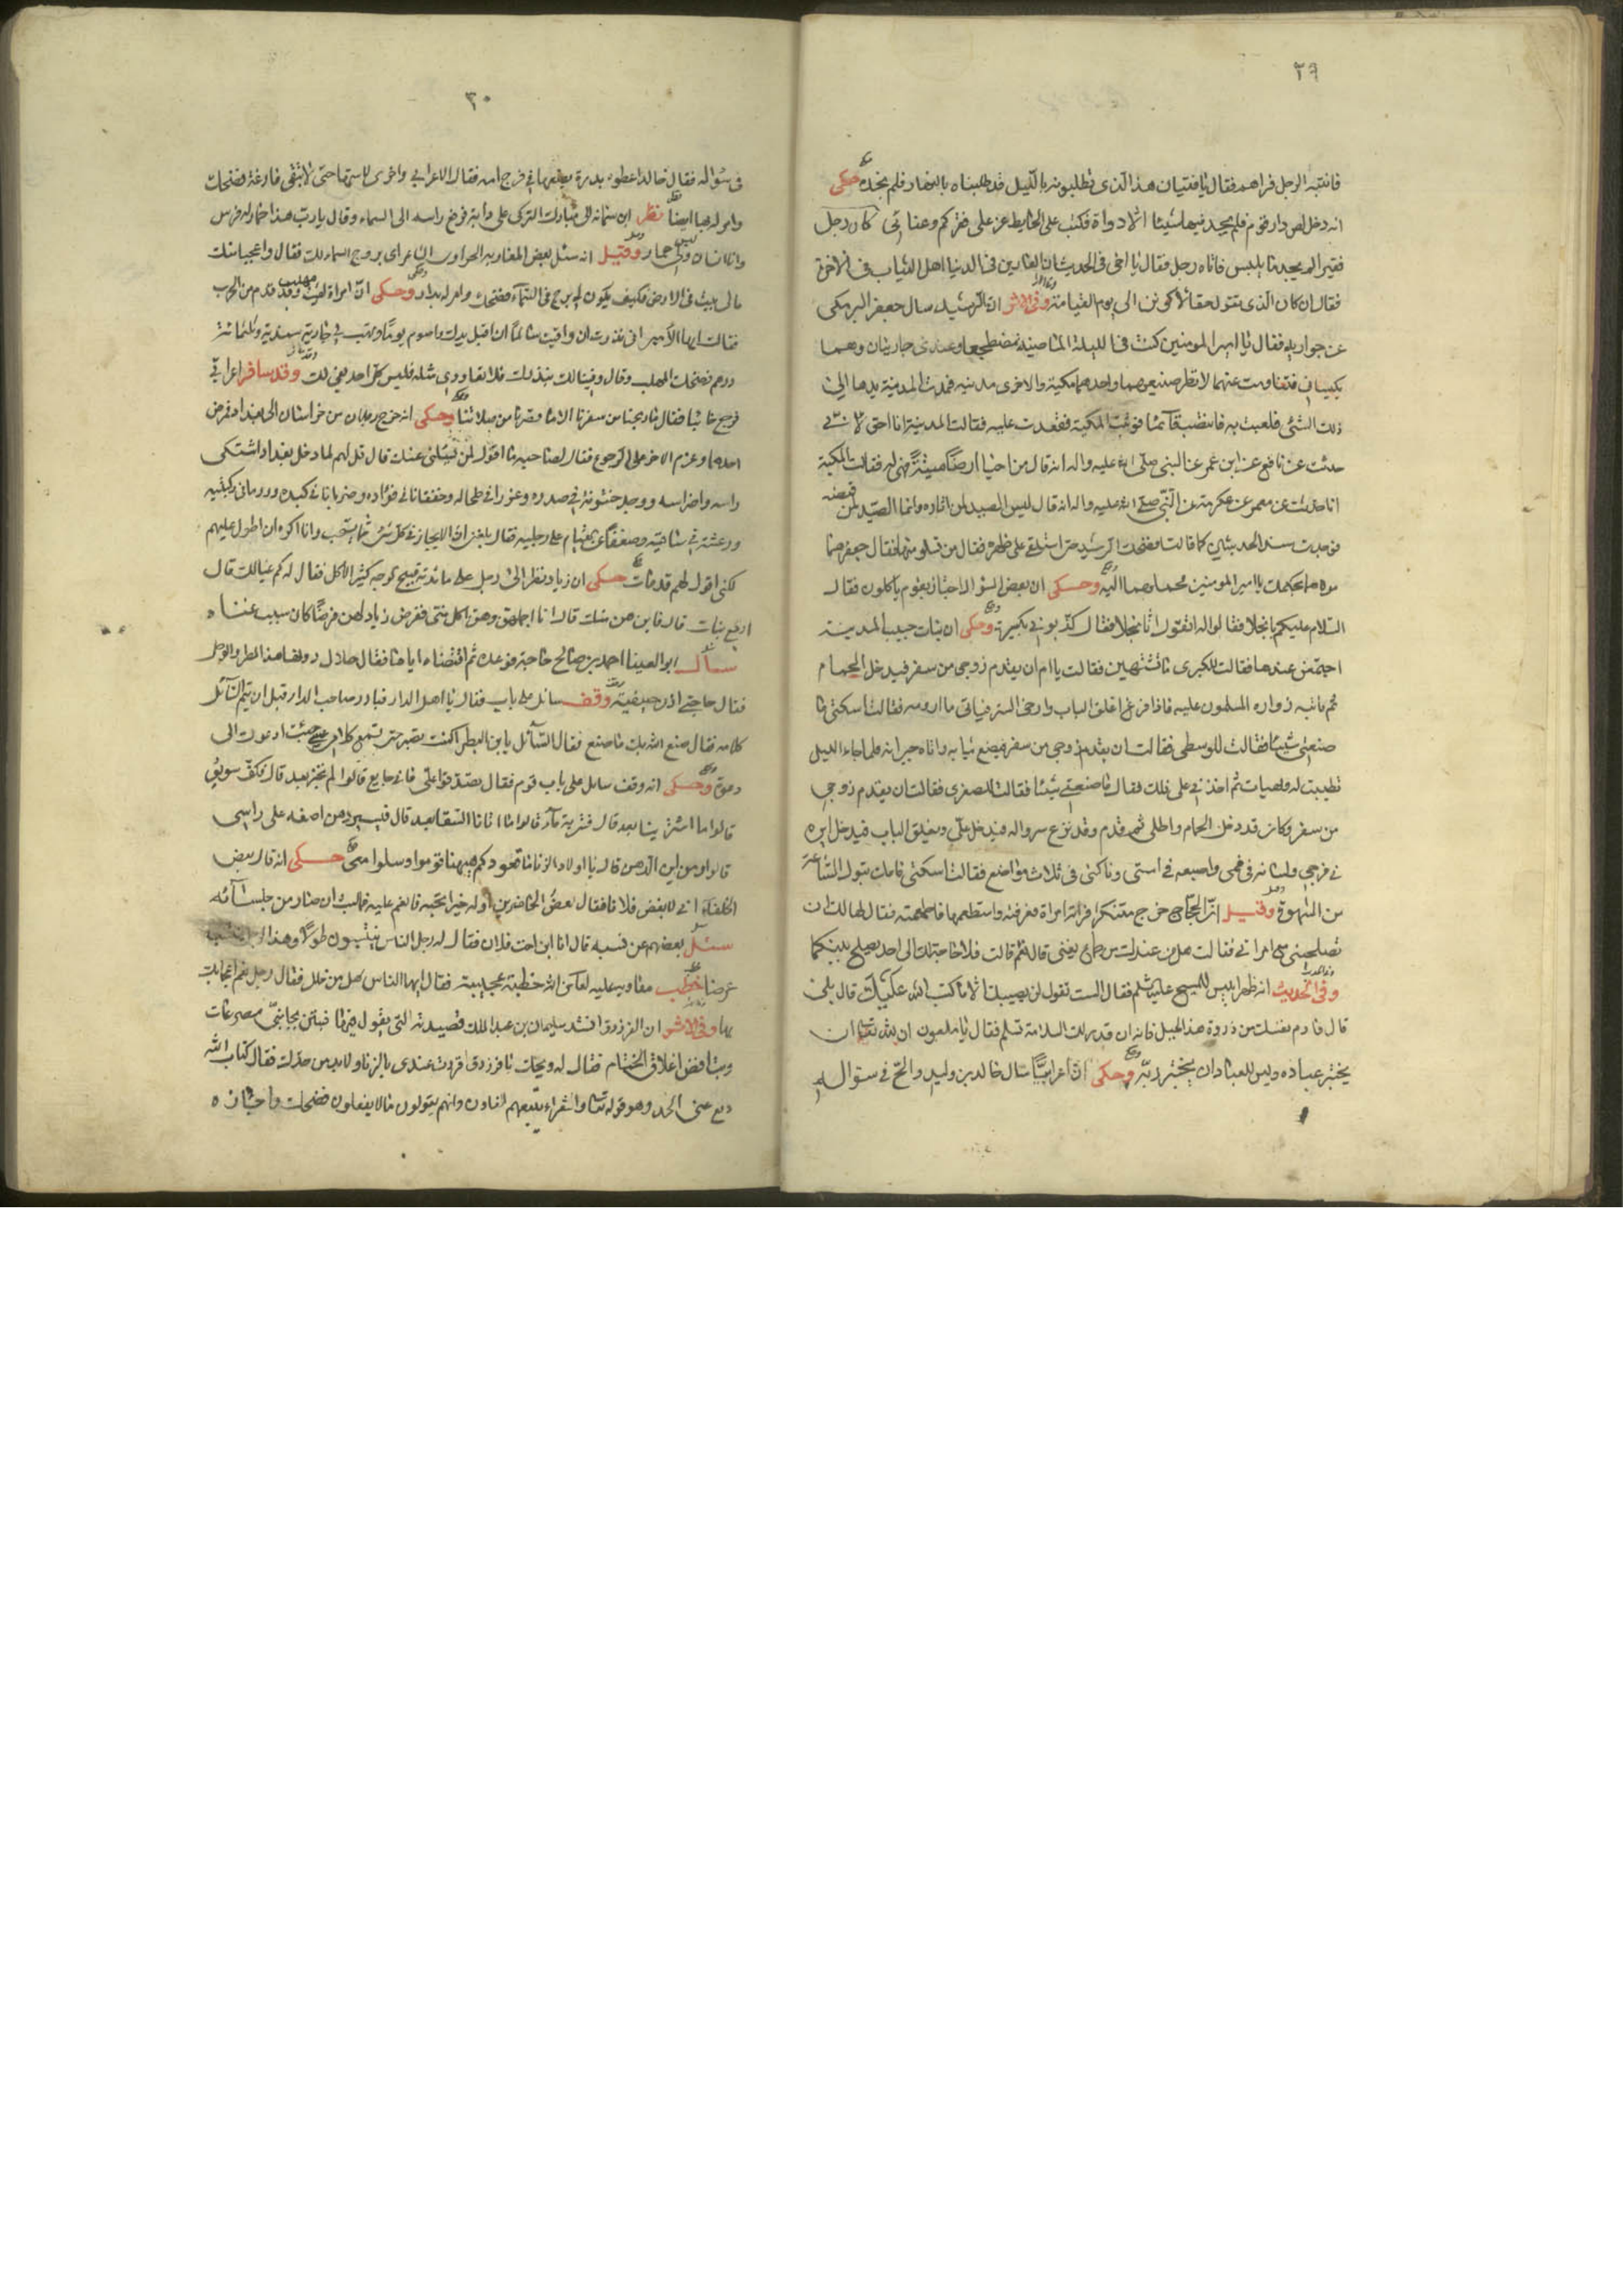 ٢٩
فانتبه الرجل فراهم فقال يا فتيان هذا الذى تطلبونه بالليل قد طلبناه بالنهار فلم نجده حكى
انه دخل لص دار قوم فلم يجد فيها شيئا الا دواة فكتب على الحايط عز على فقركم وغنائى كان رجل
فقير لم يجد ما يلبس فاتاه رجل فقال يا اخى فى الحديث ان العارين فى الدنيا اهل الثياب فى الاخرة
فقال ان كان الذى تقوله حقا لاكونن الى يوم القيامة وفى الاثر ان الرشيد سال جعفر البرمكى
عن جواريه فقال يا امير المومنين كنت فى الليلة الماضية مضطجعا وعندى جاريتان وهما
يكبسانى فتناومت عنهما لانظر صنيعهما واحدهما مكية والاخرى مدنيه فمدت المدنية يدها الى
ذلك الشئ فلعبت به فانتصب قائما فوثبت المكية فقعدت عليه فقالت المدنية انا احق لانى
حدثت عن نافع عن ابن عمر عن النبى صلى الله عليه واله انه قال من احيا ارضا ميتة فهى له فقالت المكية
انا حدثت عن معمر عن عكرمة عن النبى صلى الله عليه واله انه قال ليس الصيد لمن اثاره وانما الصيد لمن قبضه
فوجدت سند الحديثين كما قالت فضحك الرشيد حتى استلقى على ظهره فقال من تسلو منهما فقال جعفر هما
ومولاهما بحكمك يا امير المومنين فحملهما اليه وحكى ان بعض السؤال اجتاز بقوم ياكلون فقال
السلام عليكم يا بخلا فقالوا له اتقول انا بخلا فقال كذبونى بكسرة وحكى ان بنات حبيب المدينة
اجتمعن عندها فقالت للكبرى ما تشتهين فقالت يا ام ان يقدم زوجى من سفر فيدخل الحمام
ثم ياتيه زواره المسلمون عليه فاذا فرغ اغلق الباب وارخى الستر فياتى ما ارومه فقالت اسكتى ما
صنعتى شيئا فقالت للوسطى فقالت ان يقدم زوجى من سفر فيضع ثيابه واتاه جيرانه فلما جاء الليل
تطيبت له وتهيات ثم اخذنى على ذلك فقال ما صنعتى شيئا فقالت للصغرى فقالت ان يقدم زوجى
من سفر وكان قد دخل الحمام واطلى ثم قدم وقد نزع سرواله فيدخل على ويغلق الباب فيدخل ايره
فى فرجى ولسانه فى فمى واصبعه فى استى وناكنى فى ثلاث مواضع فقالت اسكتى فامك تبول الساعة
من الشهوة وقيل ان الحجاج خرج متنكرا فراته امراة فعرفته واستطعمها فاطعمته فقال لها لك ان
تصلحينى مع امراتى فقالت هل من عندك من جماع يغنى قال نعم قالت فلا حاجة لك الى احد يصلح بينكما
وفى الحديث انه ظهر ابليس للمسيح عليه السلام فقال الست تقول لن يصيبك الا ما كتب الله عليك قال بلى
قال فارم بنفسك من ذروة هذا الجبل فانه ان قدر لك السلامة تسلم فقال يا ملعون ان لله تعالى ان
يختبر عباده وليس للعباد ان يختبر ربه وحكى ان اعرابيا سال خالد بن وليد والح فى سئواله
٣٠
فى سئواله فقال خالد اعطوه بدرة يضعها فى فرج امه فقال الاعرابى واخرى لاستها حتى لا تبقى فارغة فضحك
وامر له بها ايضا نظر ابن سيابة الى مبارك التركى على دابة فرفع راسه الى السماء وقال يا رب هذا حمار له فرس
وانا انسان وليس لى حمار وقيل انه سئل بعض المغاربه الاعراب عن بروج السماء فقال واعجبا منك
مالى بيت فى الارض فكيف يكون لى برج فى السماء فضحك وامر له بدار وحكى ان امراة لقيت مهلب وقد قدم من الحرب
فقالت ايها الامير انى نذرت ان وافيت سالما ان اقبل يدك واصوم يوما وتهب لى جارية سندية وثلثمائة
درهم فضحك المهلب وقال وفينا لك بنذرك فلا تعاودى مثله فليس كل احد يفى لك وقد سافر اعرابى
فرجع خائبا فقال ما ربحنا من سفرنا الا ما قصرنا من صلاتنا وحكى انه خرج رجلان من خراسان الى بغداد فمرض
احدهما وعزم الاخر على الرجوع فقال لصاحبه ما اقول لمن يسئلنى عنك قال قل لهم لما دخل بغداد اشتكى
راسه واضراسه ووجد خشونة فى صدره وغورا فى طحاله وخفقانا فى فؤاده وضربانا فى كبده وورما فى ركبتيه
ورعشة فى ساقيه وضعفا عن القيام على رجليه فقال بلغنى ان الايجاز فى كل شئ مما يستحب وانا اكره ان اطول عليهم
لكنى اقول لهم قد مات حكى ان زياد نظر الى رجل على مائدته قبيح الوجه كثير الاكل فقال له كم عيالك قال
اربع بنات قال فاين هن منك قال انا اجمل منهن وهن اكل منى ففرض زياد لهن فرضا كان سبب غناه
سأل ابو العينا احمد بن صالح حاجة فوعده ثم اقتضاه اياها فقال حال دونها هذا المطر والوحل
فقال حاجتى اذن صيفية وقف سائل على باب فقال يا اهل الدار فبادر صاحب الدار قبل ان يتم السائل
كلامه فقال صنع الله بك ما صنع فقال السائل يا ابن البظراء كنت تصبر حتى تسمع كلامى عسى جئت ادعوك الى
دعوة وحكى انه وقف سايل على باب قوم فقال تصدقوا على فانى جايع قالوا لم نخبز بعد قال فكف سويق
قالوا ما اشترينا بعد قال فشربة ماء قالوا ما اتانا السقا بعد قال فيسير دهن اضعه على راسى
قالوا ومن اين الدهن قال يا اولاد الزنا ما قعودكم هيهنا قوموا وسلوا معى حكى انه قال بعض
الخلفاء انى لابغض فلانا فقال بعض الحاضرين اوله خيرا تحبه فانعم عليه فما لبث ان صار من جلسائه
سئل بعضهم عن نسبه قال انا ابن اخت فلان فقال له رجل الناس ينتسبون طولا وهذا الرجل ينتسب
عرضا خطب معاويه عليه لعائن الله خطبة عجيبة فقال ايها الناس هل من خلل فقال رجل نعم
بها وفى الاثر ان الفرزدق انشد سليمان بن عبد الملك قصيدته التى يقول فيها فبتن بجانبى مصرعات
وبت افض اغلاق الختام فقال له ويحك يا فرزدق اقررت عندى بالزنا ولا بد من حدك فقال كتاب الله
دع عنى الحد وهو قوله تعالى والشعراء يتبعهم الغاون وانهم يقولون مالا يفعلون فضحك واجازه